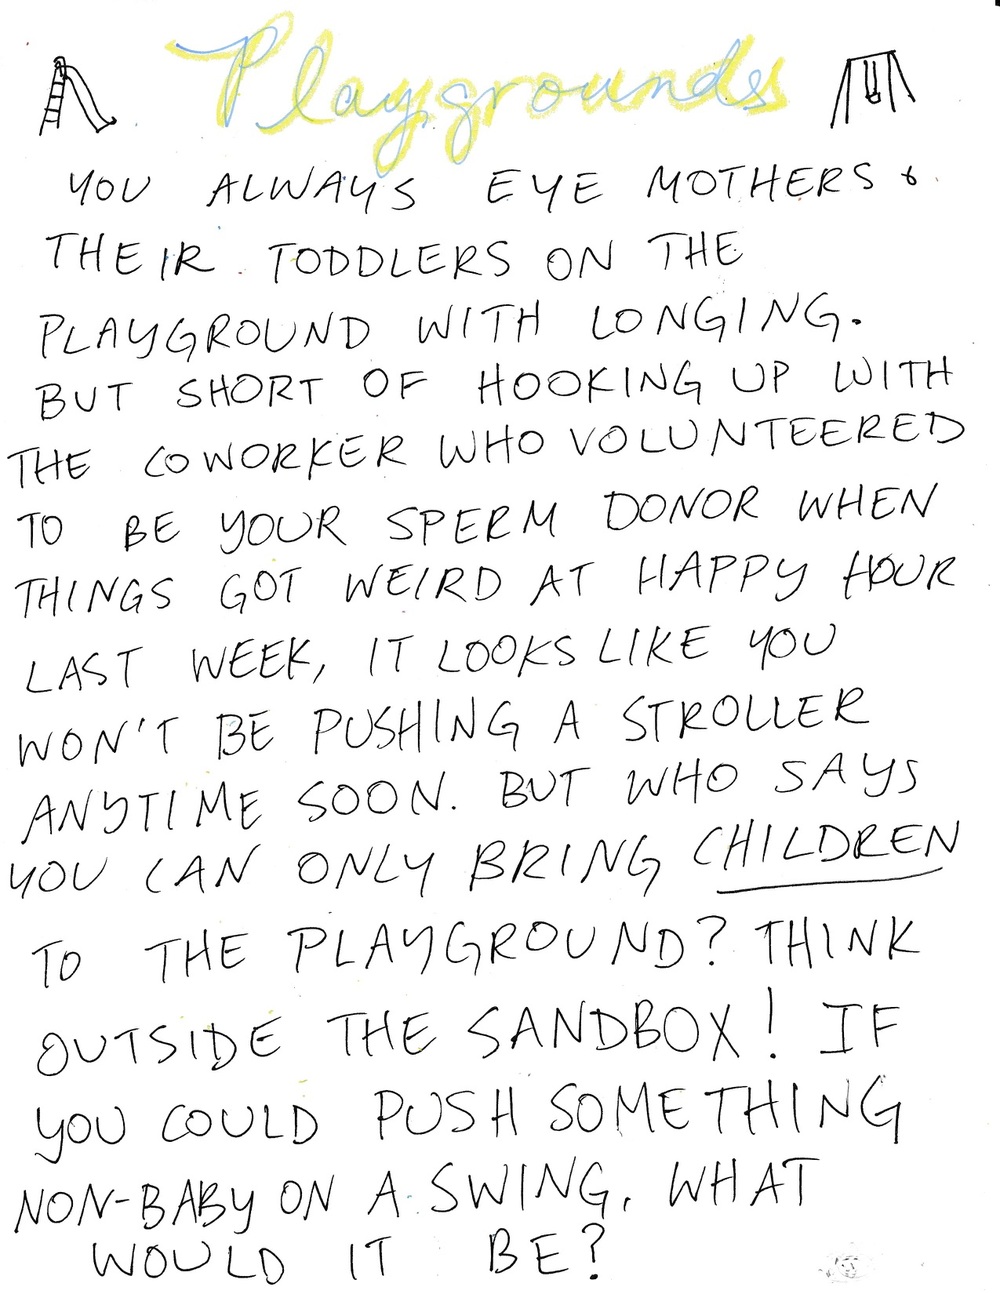 Playgrounds
YOU ALWAYS EYE MOTHERS &
THEIR TODDLERS ON THE
PLAYGROUND WITH LONGING.
BUT SHORT OF HOOKING UP WITH
THE COWORKER WHO VOLUNTEERED
TO BE YOUR SPERM DONOR WHEN
THINGS GOT WEIRD AT HAPPY HOUR
LAST WEEK, IT LOOKS LIKE YOU
WON'T BE PUSHING A STROLLER
ANYTIME SOON. BUT WHO SAYS
YOU CAN ONLY BRING CHILDREN
TO THE PLAYGROUND? THINK
OUTSIDE THE SANDBOX! IF
YOU COULD PUSH SOMETHING
NON-BABY ON A SWING, WHAT
WOULD IT BE?